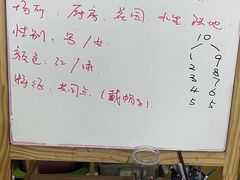 场所：厨房、花园、水里、陆地.
性别：男/女
颜色：红/
特征：共同点.(戴帽子).
10
1 9
2 8
3 7
4 6
5 5